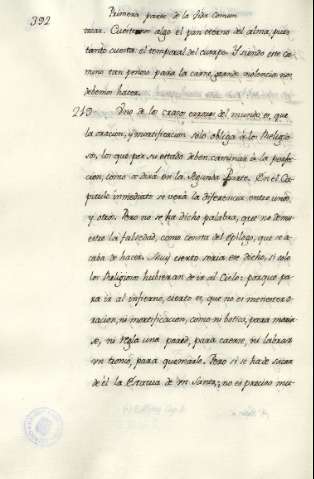 392
Primera parte de la Vida Comun
tar. Cuestenos algo el pan eterno del alma, pues
tanto cuesta el temporal del cuerpo. Y siendo este ca-
mino tan penoso para la carne, grande violencia nos
debemos hacer.
243 Uno de los crasos errores del mundo es, que
la oracion, y mortificacion sólo obliga á los Religio-
sos, los que por su estado deben caminar á la perfec-
cion, como se dirá en la Segunda Parte. En el Ca-
pitulo inmediato se verá la diferencia entre unos,
y otros. Pero no se ha dicho palabra, que no demu-
estre la falsedad, como consta del Epílogo, que se a-
caba de hacer. Muy cierto sería ese dicho, si solo
los Religiosos hubieran de ir al Cielo: porque pa-
ra ir al infierno, cierto es, que no es menester o-
racion, ni mortificacion, como ni botica, para morir-
se, ni regla una pared, para caerse, ni labrar
un tronco, para quemarle. Pero si se ha de sacar
de él la Estatua de un Santo, no es preciso me-